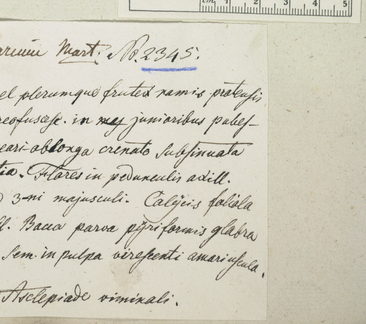 Mart. No. 2345.
el plerumque frutex ramis protensis
in junioribus pubes-
eari-oblonga crenato subsinuata
tia. Flores in pedunculis axill.
3-ni majusculi. Calycis foliola
ll. Bacca parva pyriformis glabra
sem. in pulpa virescenti amariuscula.
Asclepiade viminali.